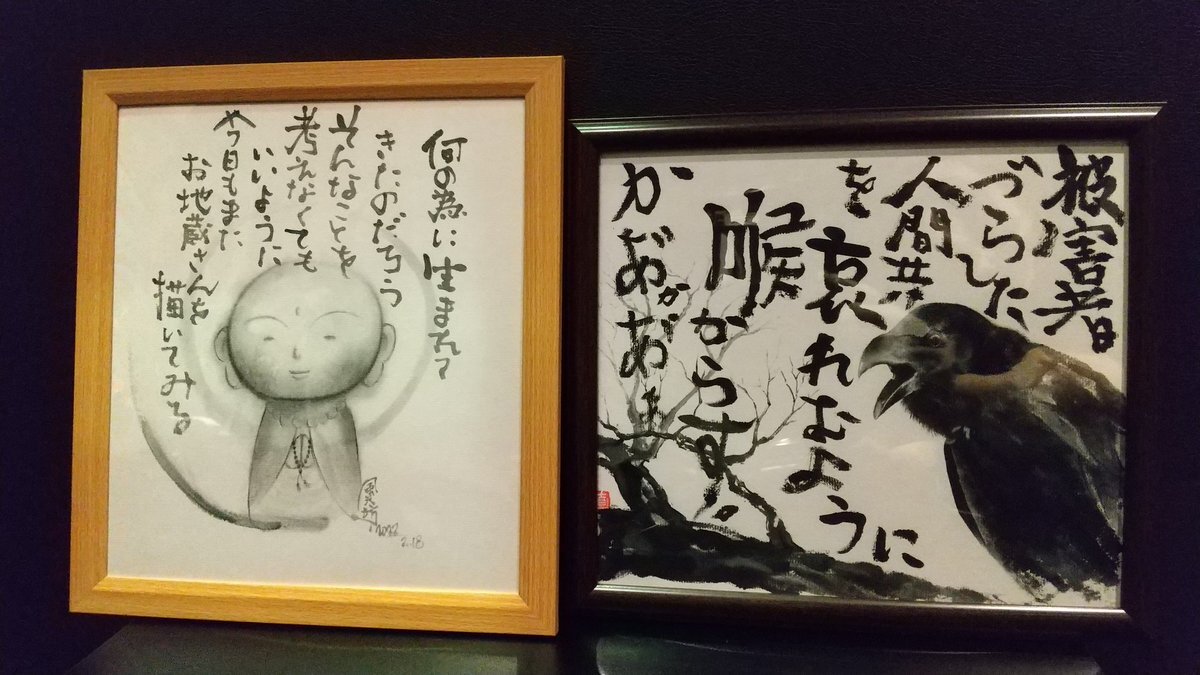 何の為に生まれて
きたのだろう
そんなことを
考えなくても
いいように
今日もまた
お地蔵さんを
描いてみる
2.18
被害者
づらした
人間共
を
哀れむように
喉からす!